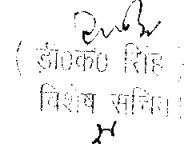 ( डी०के० सिंह )
विशेष सचिव।